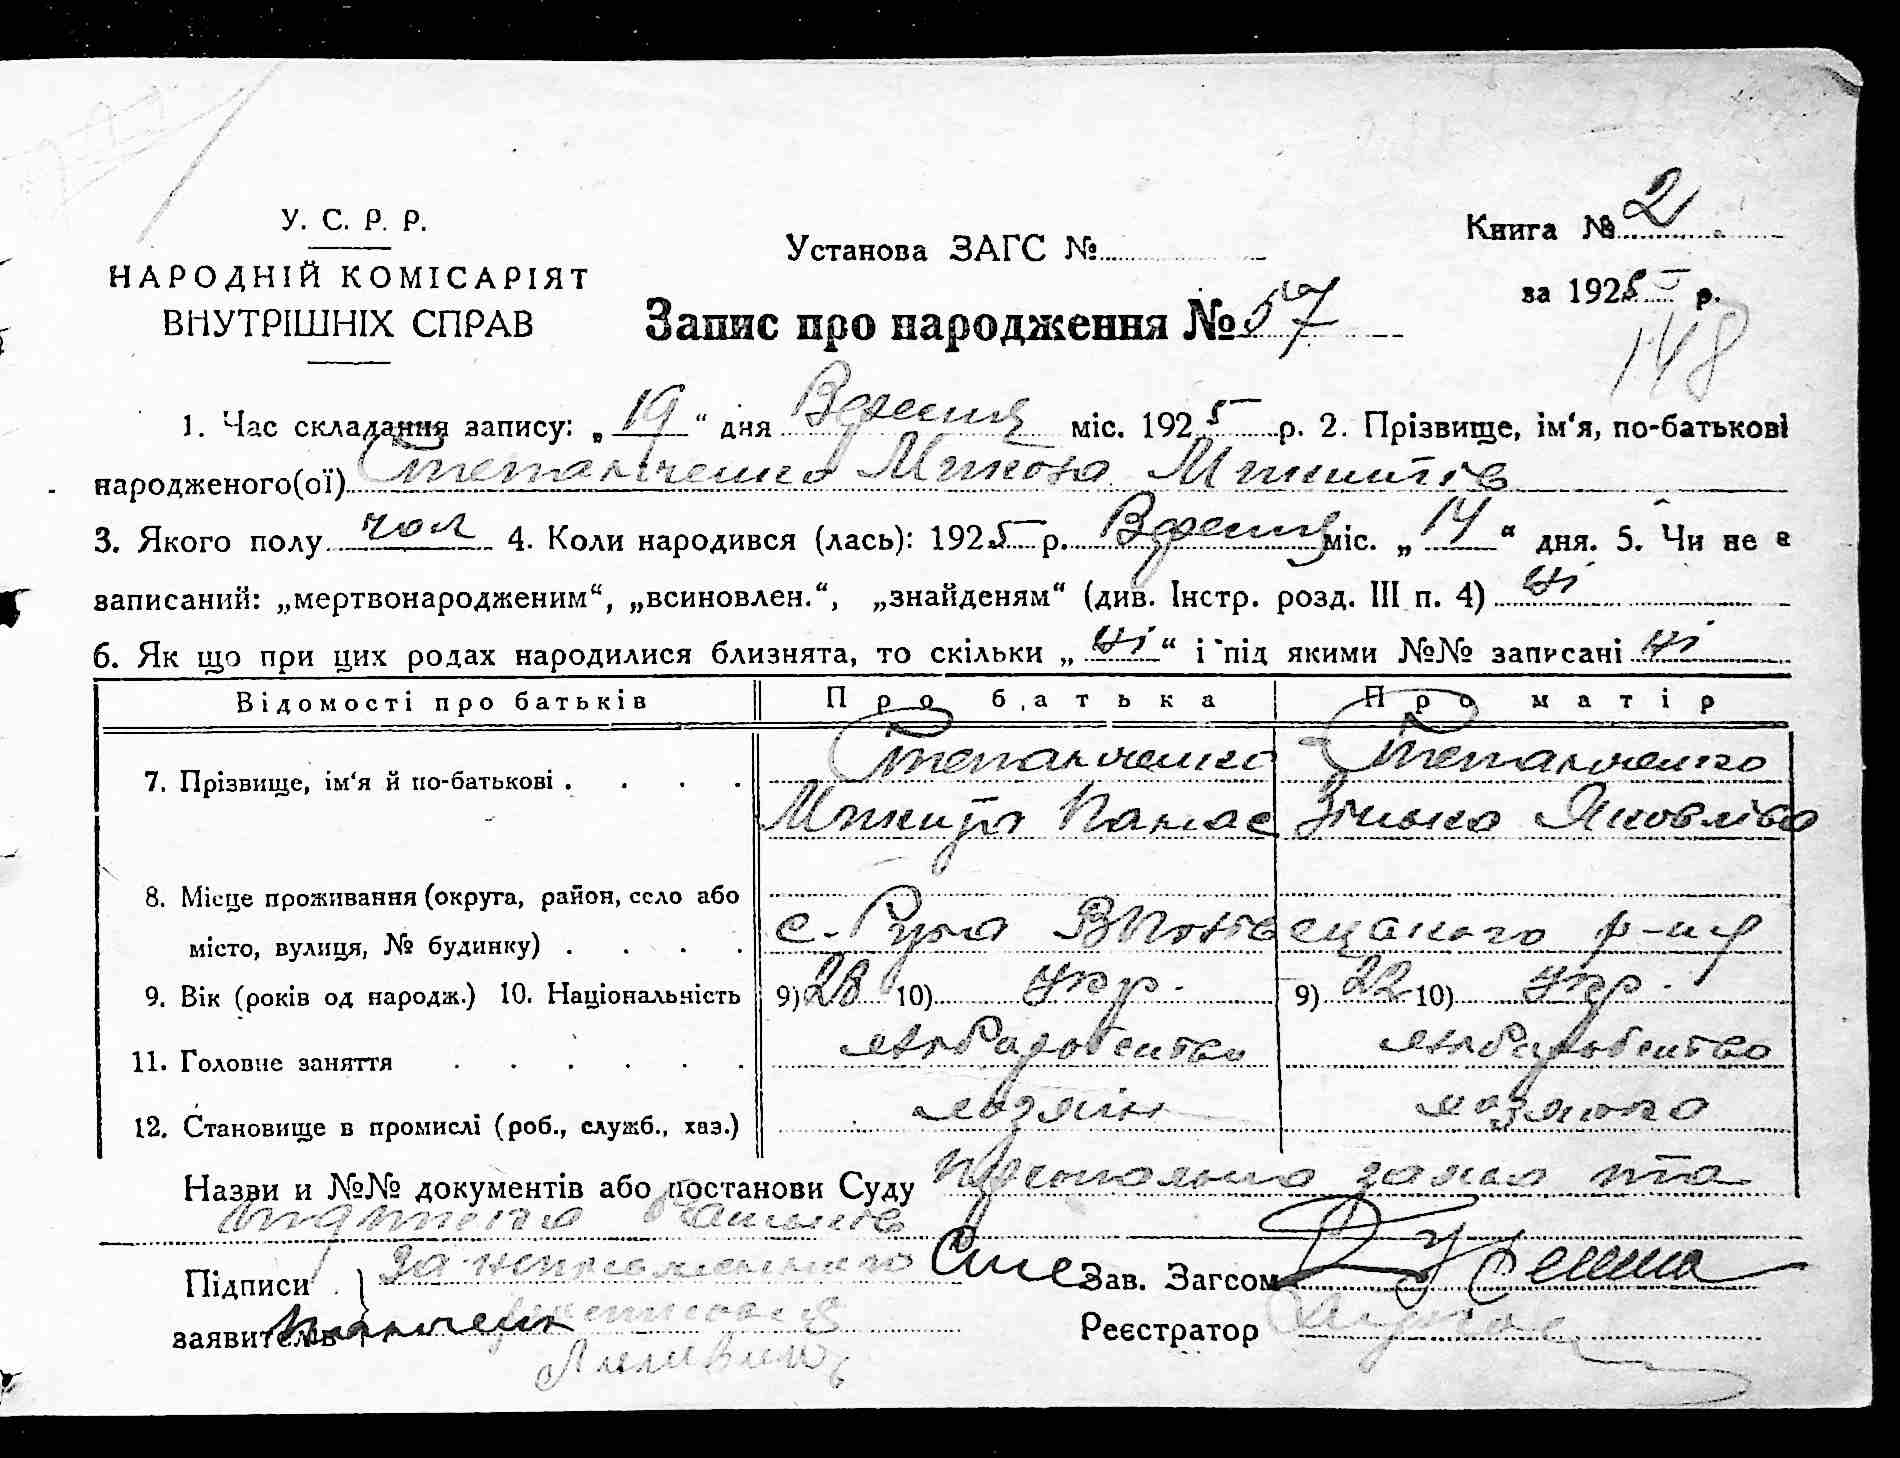 У. С. Р. Р.
НАРОДНІЙ КОМІСАРІЯТ
ВНУТРІШНІХ СПРАВ
Установа ЗАГС №
Книга № 2
за 1925 р.
Запис про народження № 57
148
1. Час складання запису: „19“ дня Вересня міс. 1925 р. 2. Прізвище, ім‘я, по-батькові
народженого(ої) Степанченко Микола Микитів
3. Якого полу чол 4. Коли народився (лась): 1925 р. Вересня міс. „14“ дня. 5. Чи не є
записаний: „мертвонародженим“, „всиновлен.“, „знайденям“ (див. Інстр. розд. III п. 4) ні
6. Як що при цих родах народилися близнята, то скільки „ні“ і під якими №№ записані ні
Відомості про батьків Про батька Про матір
7. Прізвище, ім‘я й по-батькові Степанченко Степанченко
Микита Панас Зінька Яковліва
8. Місце проживання (округа, район, село або
місто, вулиця, № будинку) с. Руда р-ня
9. Вік (років од народж.) 10. Національність 9) 28 10) Укр. 9) 22 10) Укр.
11. Головне заняття хліборобство хліборобство
12. Становище в промислі (роб., служб., хаз.) хазяїн хазяйка
Назви и №№ документів або постанови Суду Персональна заява та
Підписи За неписьменного Сте Зав. Загсом
заявителів панченк Реєстратор